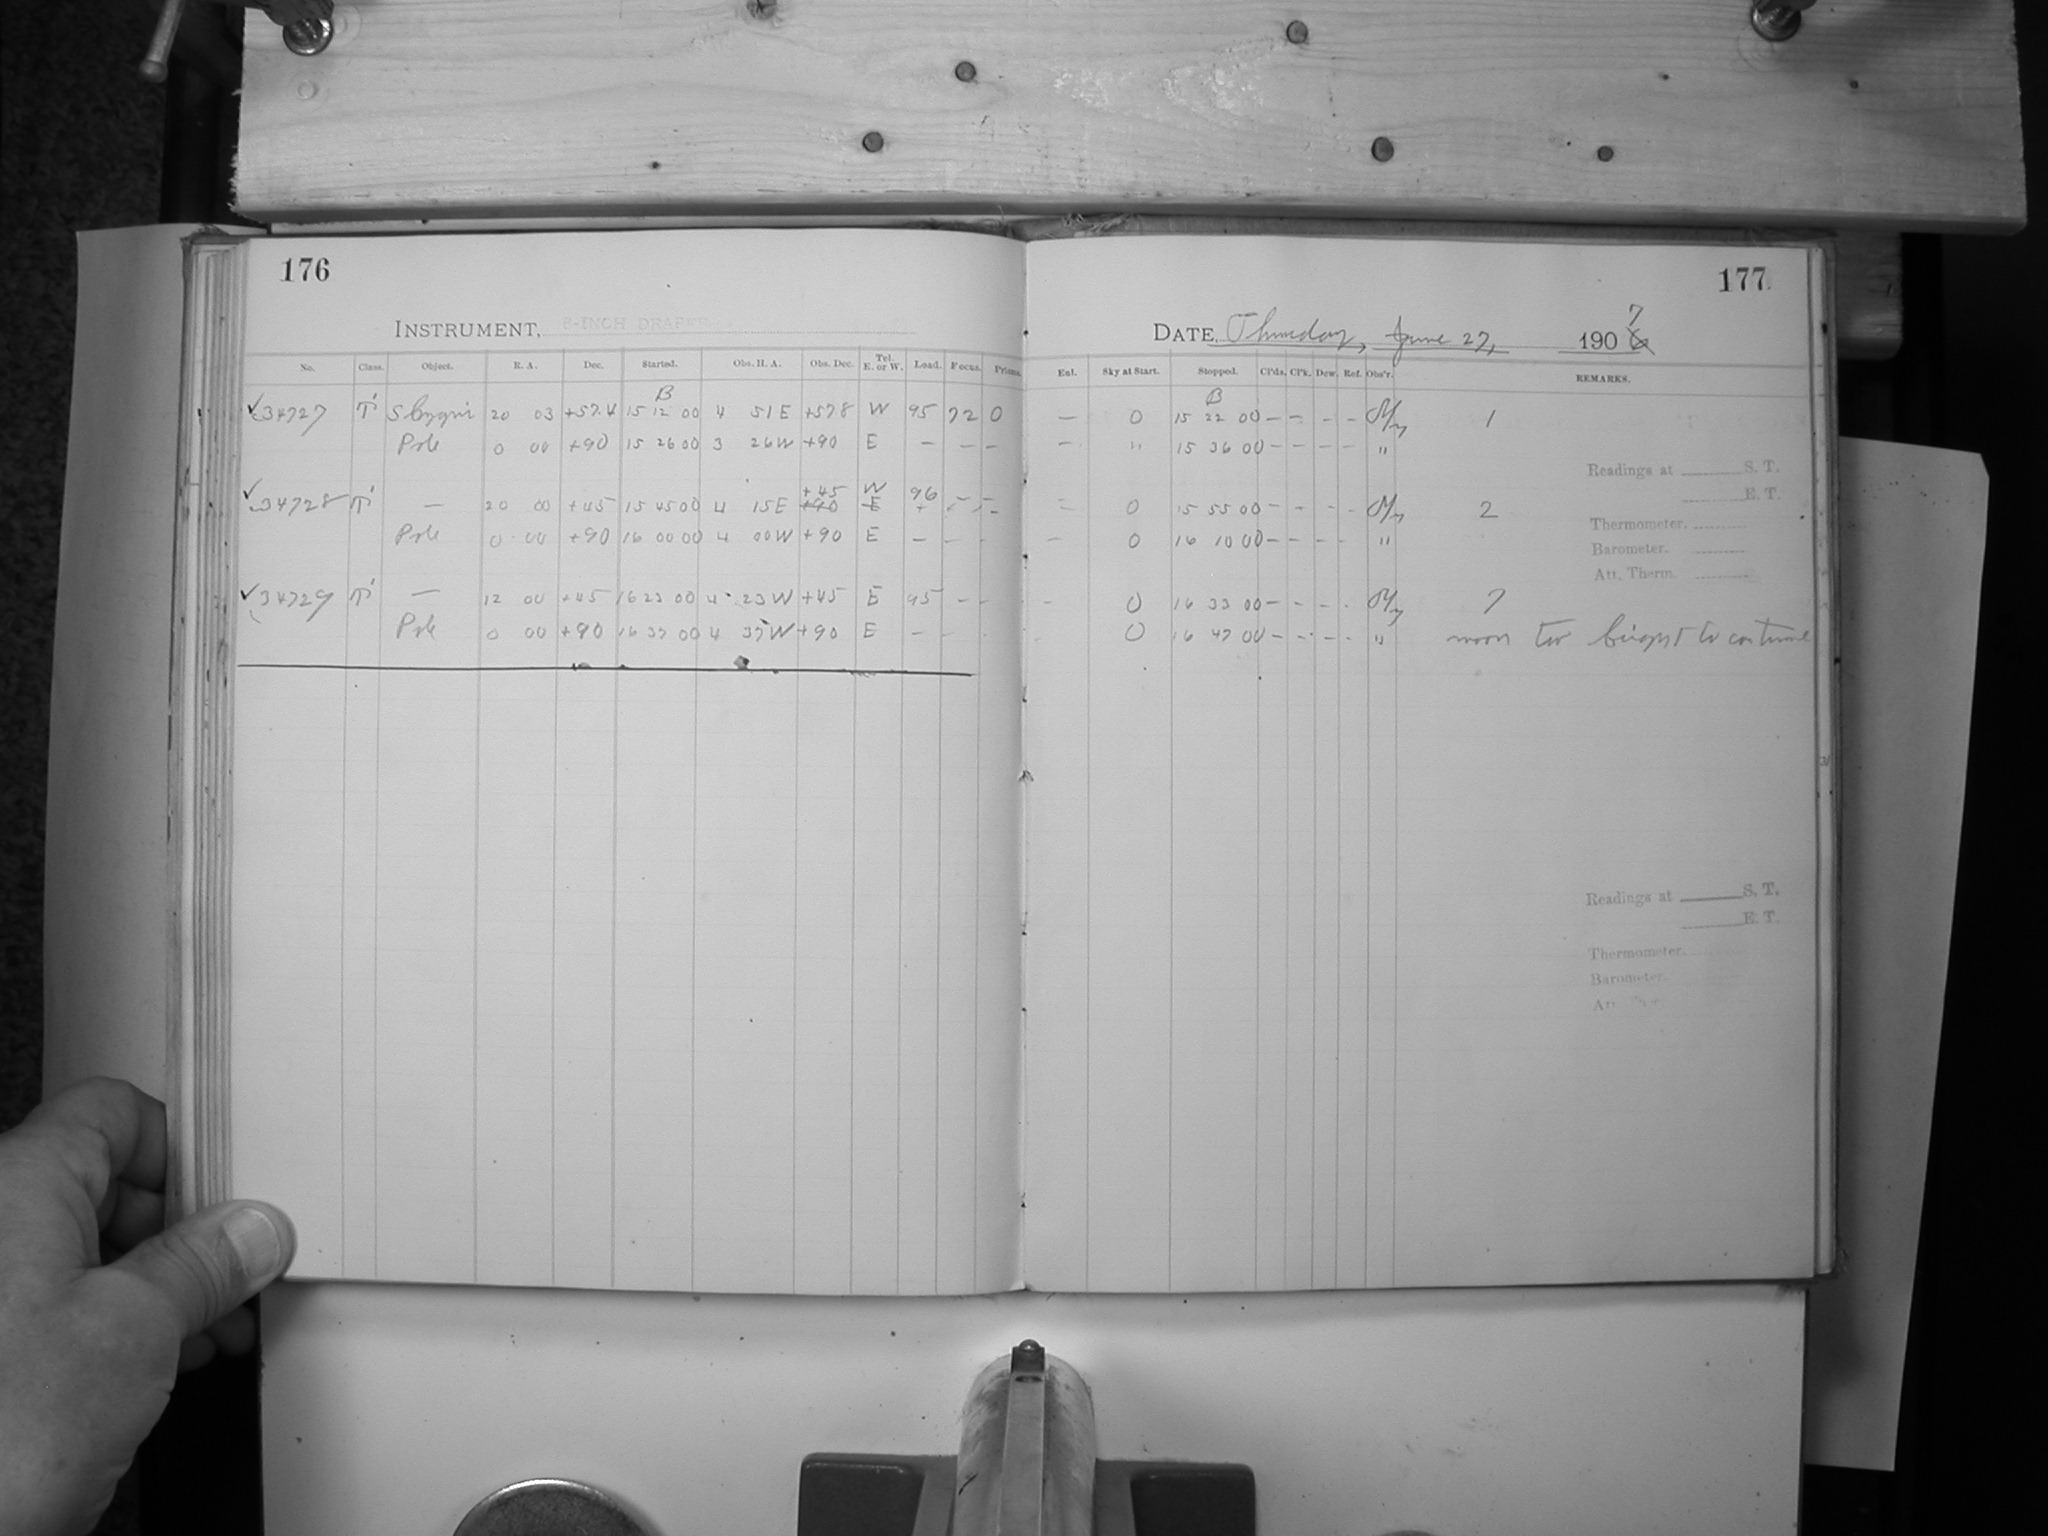 176
177
INSTRUMENT, 8-INCH DRAPER
DATE, Thursday, June 27, 190 7
No. Class. Object. R. A. Dec. Started. Obs. H. A. Obs. Dec. Tel. E. or W. Load. Focus. Prisms. Enl. Sky at Start. Stopped. Cl'ds. Cl'k. Dew. Ref. Obs'r. REMARKS.
B B
✓34727 T' S Cygni 20 03 +57.4 15 12 00 4 51 E +57.8 W 95 72 0 — 0 15 22 00 — — — — 1
Pole 0 00 +90 15 26 00 3 26 W +90 E — — — — " 15 36 00 — — — — "
Readings at S. T.
E. T.
+45 W
✓34728 T' — 20 00 +45 15 45 00 4 15 E +90 E 96 — — — 0 15 55 00 — — — — 2
Thermometer.
Pole 0 00 +90 16 00 00 4 00 W +90 E — — — — 0 16 10 00 — — — — "
Barometer.
Att. Therm.
✓34729 T' — 12 00 +45 16 23 00 4 23 W +45 E 95 — — — 0 16 33 00 — — — — 7
Pole 0 00 +90 16 37 00 4 37 W +90 E — — — — 0 16 47 00 — — — — " moon too bright to continue
Readings at S. T.
E. T.
Thermometer.
Barometer.